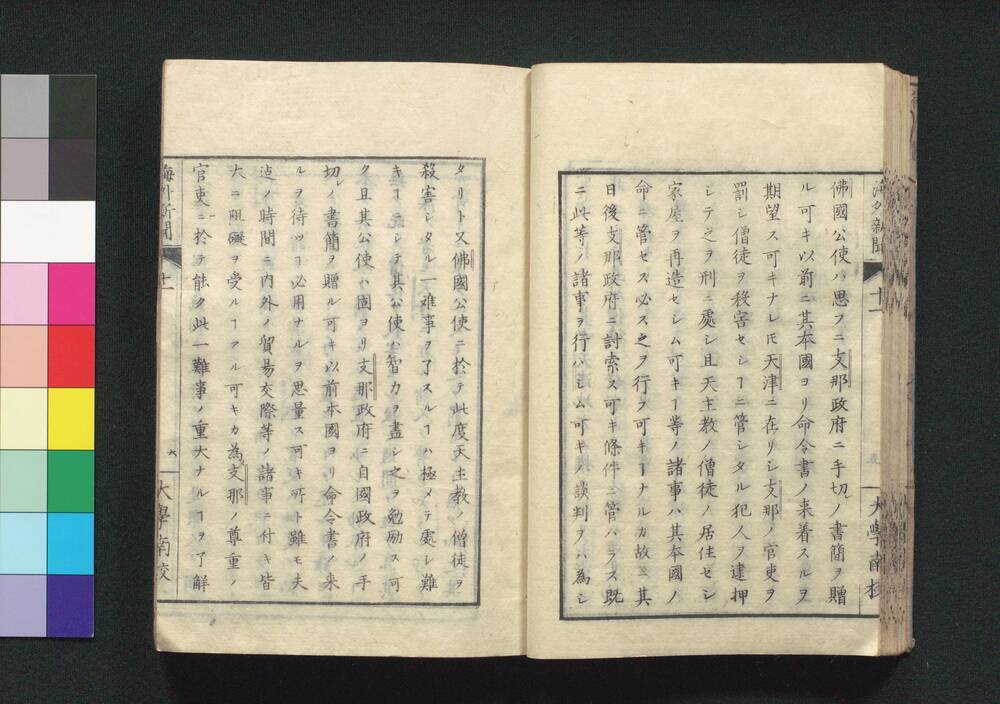 海外新聞 十一 大學南校
佛國公使ハ思フニ支那政府ニ手切ノ書簡ヲ贈
ル可キ以前ニ其本國ヨリ命令書ノ来着スルヲ
期望ス可キナレ𪜈天津ニ在リシ支那ノ官吏ヲ
罰シ僧徒ヲ殺害セシヿニ管シタル犯人ヲ逮押
シテ之ヲ刑ニ處シ且天主教ノ僧徒ノ居住セシ
家屋ヲ再造セシム可キヿ等ノ諸事ハ其本國ノ
命ニ管セス必ス之ヲ行フ可キヿナルカ故ニ其
日後支那政府ニ討索ス可キ條件ニ管ハラス既
ニ此等ノ諸事ヲ行ハシム可キノ談判ヲハ為シ
タリト又佛國公使ニ於テ此度天主教ノ僧徒ヲ
殺害シタル一難事ヲ了スルヿハ極メテ處シ難
キヿニシテ其公使ハ智力ヲ盡シ之ヲ勉勵ス可
ク且其公使ハ固ヨリ支那政府ニ自國政府ノ手
切レノ書簡ヲ贈ル可キ以前本國ヨリ命令書ノ来
ルヲ待ツヿ必用ナルヲ思量ス可キ所ト雖モ夫
迠ノ時間ニ内外ノ貿易交際等ノ諸事ニ付キ皆
大ニ阻礙ヲ受ルヿアル可キカ為支那ノ尊重ノ
官吏ニ於テ能ク此一難事ノ重大ナルヿヲ了解
海外新聞 十一 六 大學南校